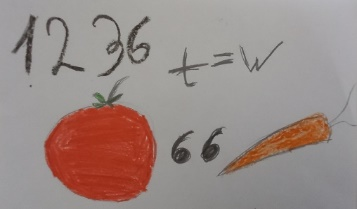 1236 t=w
66